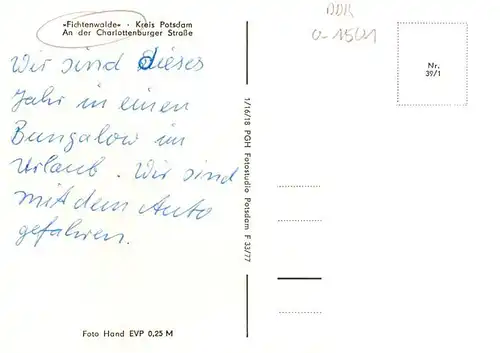 »Fichtenwalde« · Kreis Potsdam
An der Charlottenburger Straße
Wir sind dieses
Jahr in einen
Bungalow im
Urlaub. Wir sind
mit dem Auto
gefahren.
Foto Hand EVP 0,25 M
1/16/18 PGH Fotostudio Potsdam F 33/77
DDR
0-1501
Nr.
39/1